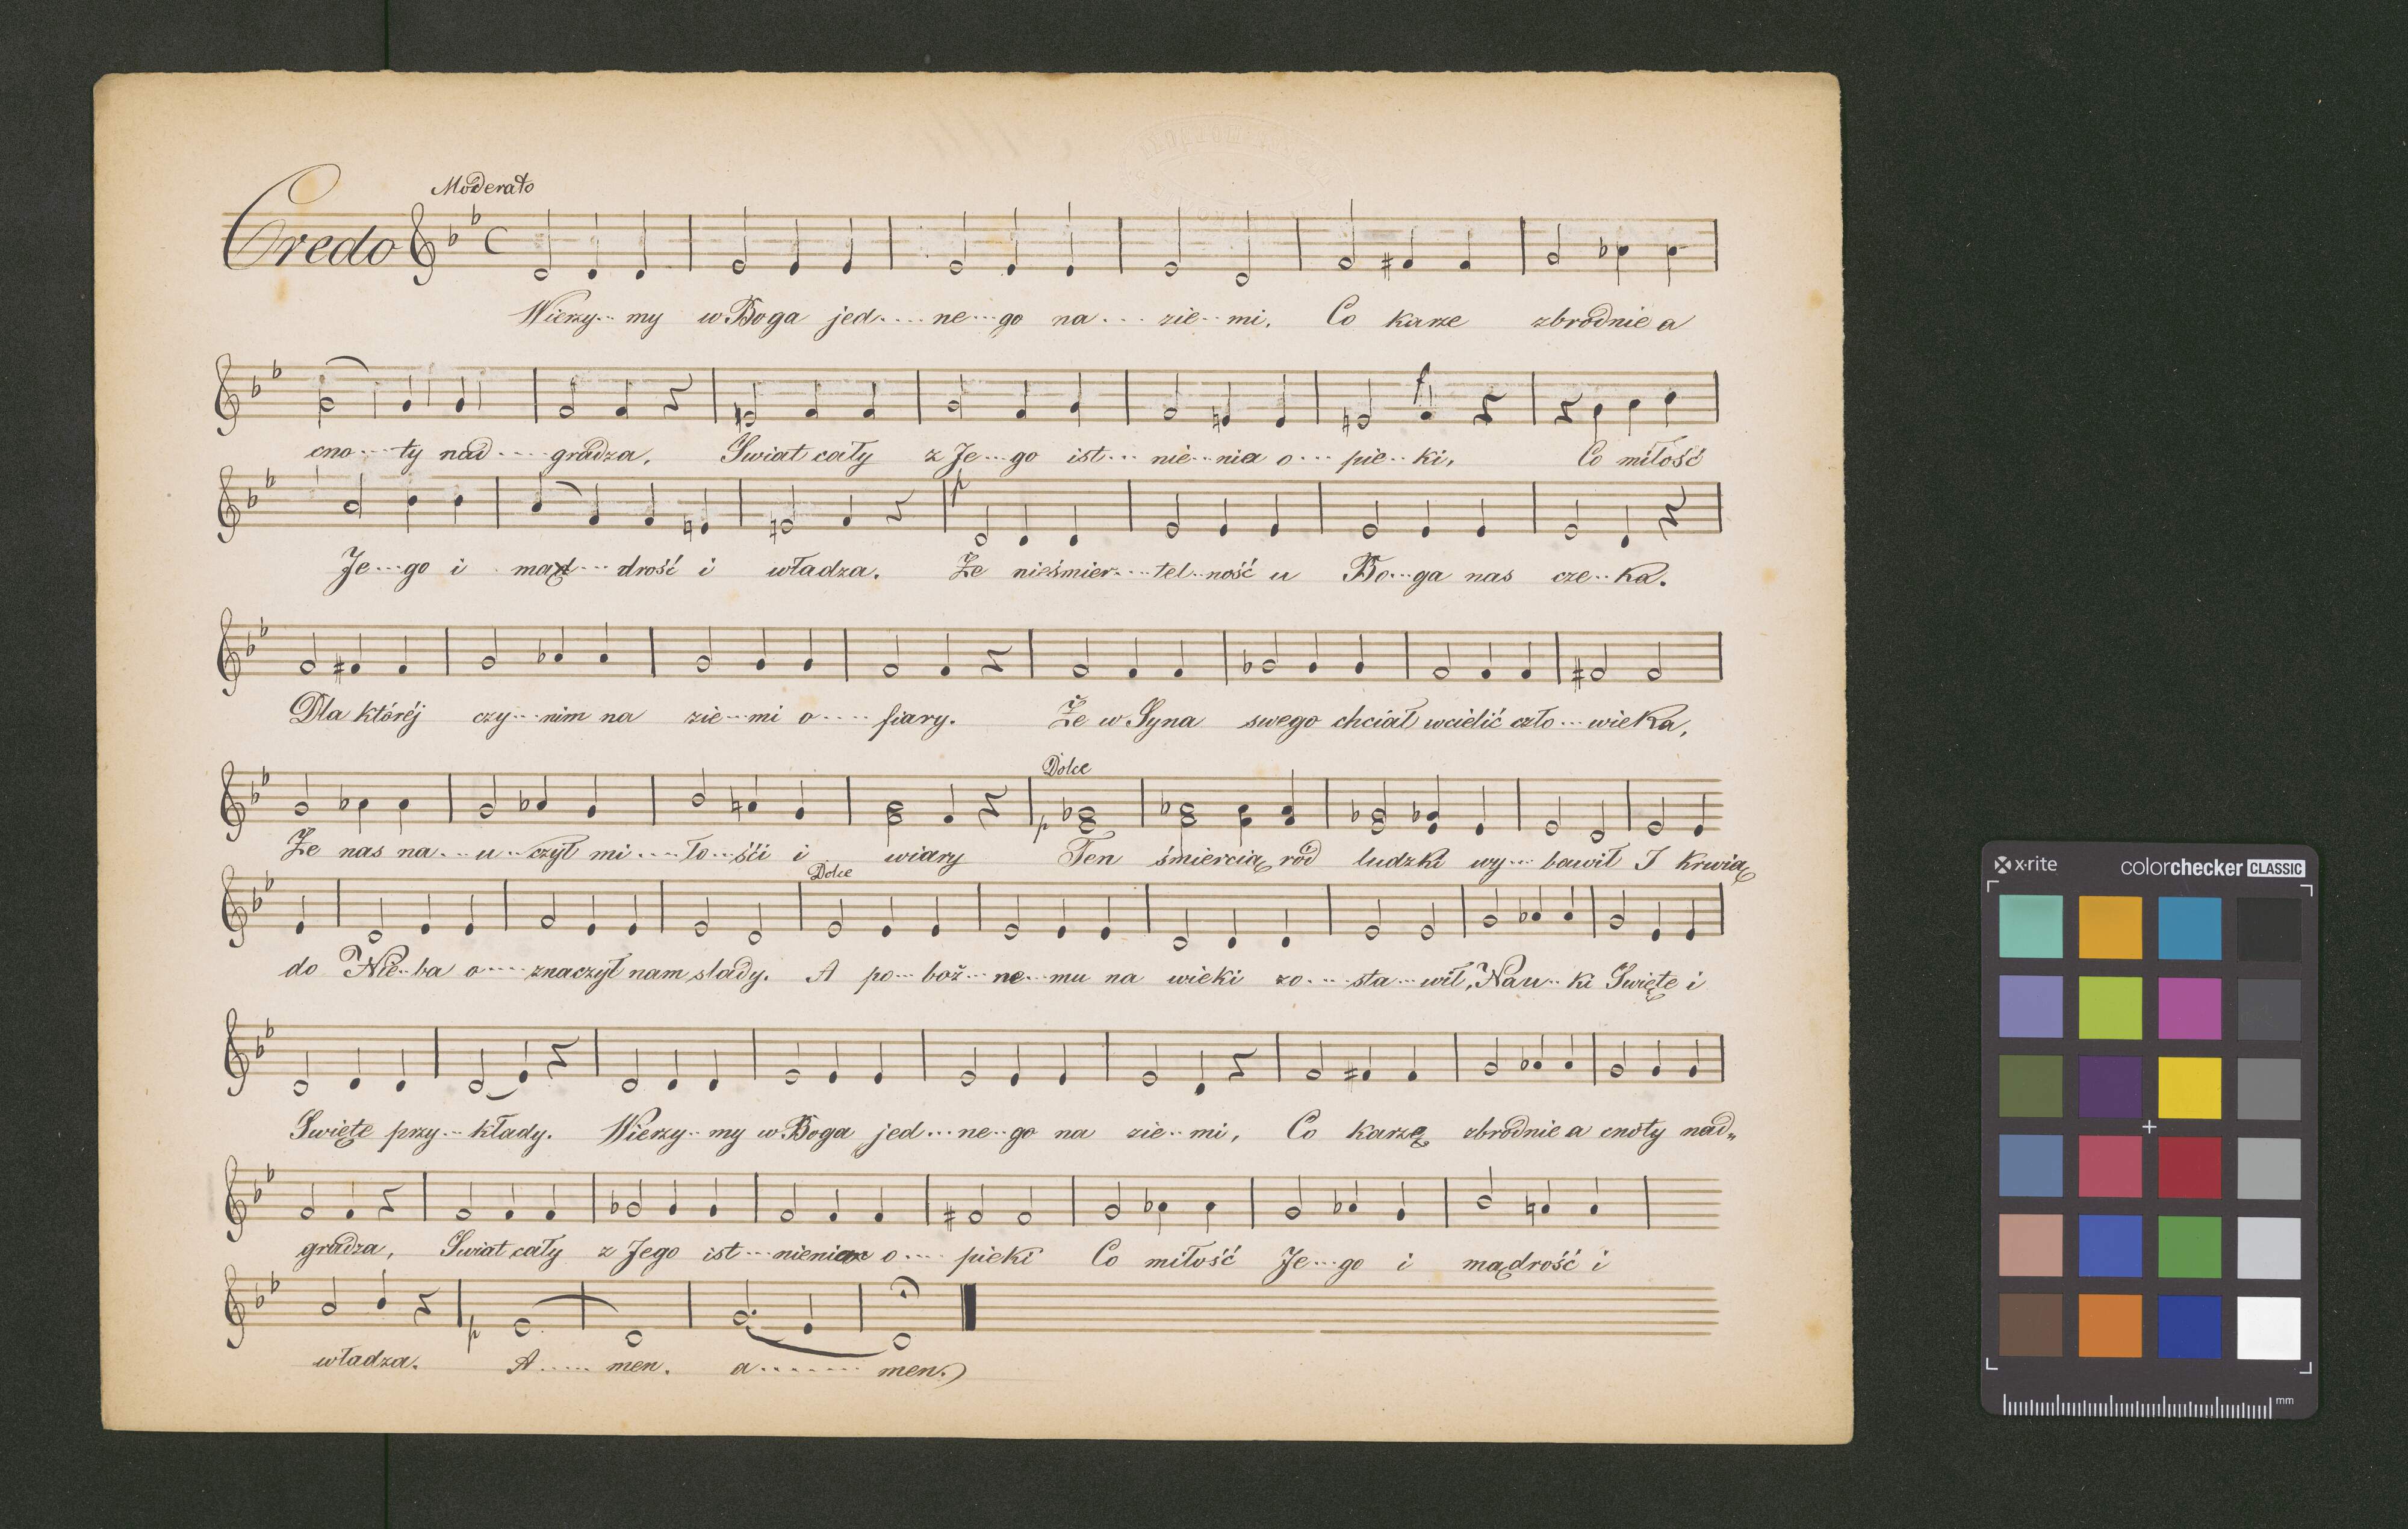 Moderato
Credo
Wierzy... my w Boga jed.... ne...go na... zie...mi. Co karze zbrodnie a
cno....ty nad....gradza, Swiat cały z Je...go ist... nie...nia o... pie..ki, Co miłość
Je...go i mąd...drość i władza. Że nieśmier....tel..ność u Bo...ga nas cze..ka.
Dla któréj czy...nim na zie...mi o.... fiary. Że w Syna swego chciał wcielić czło...wieka,
Dolce
Że nas na...u...czył mi....ło...ści i wiary Ten śmiercią ród ludzki wy... bawił I krwią
Dolce
do Nie..ba o.... znaczył nam slady. A po...boż...ne...mu na wieki zo....sta...wił, Nau..ki Swięte i
Swięte przy...kłady. Wierzy..my w Boga jed...ne..go na zie..mi, Co karzę zbrodnie a cnoty nad„
gradza, Swiat cały z Jego ist...nienia o.... pieki Co miłość Je...go i mądrość i
władza. A..... men. a....... men.
x-rite colorchecker CLASSIC
mm